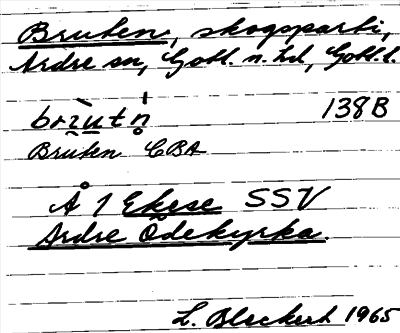 Bruten, skogsparti,
Ardre sn, Gotl. n. hd, Gotl. l.
138B
Bruten CBA
Å 1 Ekese SSV
Ardre Ödekyrka.
L. Bleckert 1965